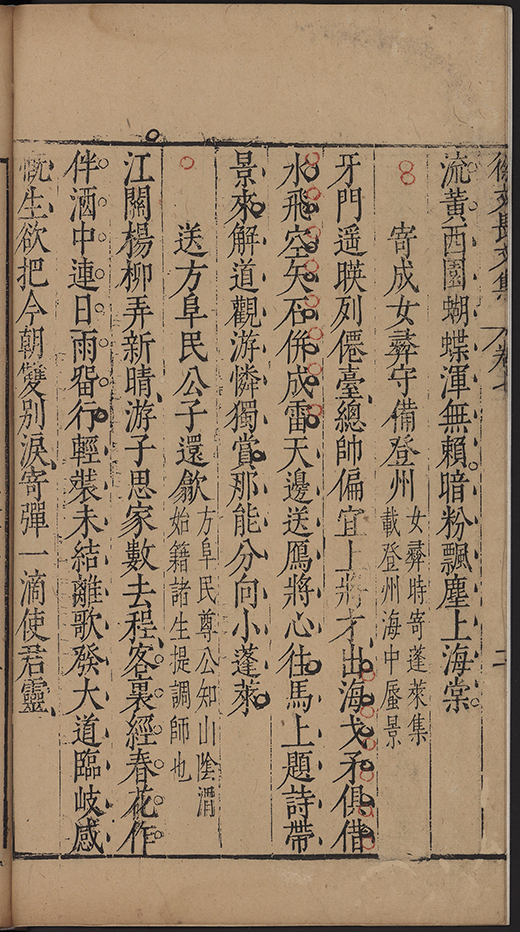 徐文長文集 卷七 二
流黃西園蝴蝶渾無賴暗粉飄塵上海棠
寄成女彝守備登州
女彝時寄蓬萊集
載登州海中蜃景
牙門遥暎列僊臺總帥偏宜上將才出海戈矛俱借
水飛空矢石倂成雷天邊送鴈將心往馬上題詩帶
景來解道觀游憐獨賞那能分向小蓬萊
送方阜民公子還歙
方阜民尊公知山陰渭
始籍諸生提調師也
江關楊柳弄新晴游子思家數去程客裏經春花作
伴酒中連日雨畱行輕裝未結離歌發大道臨岐感
慨生欲把今朝雙别淚寄彈一滴使君靈